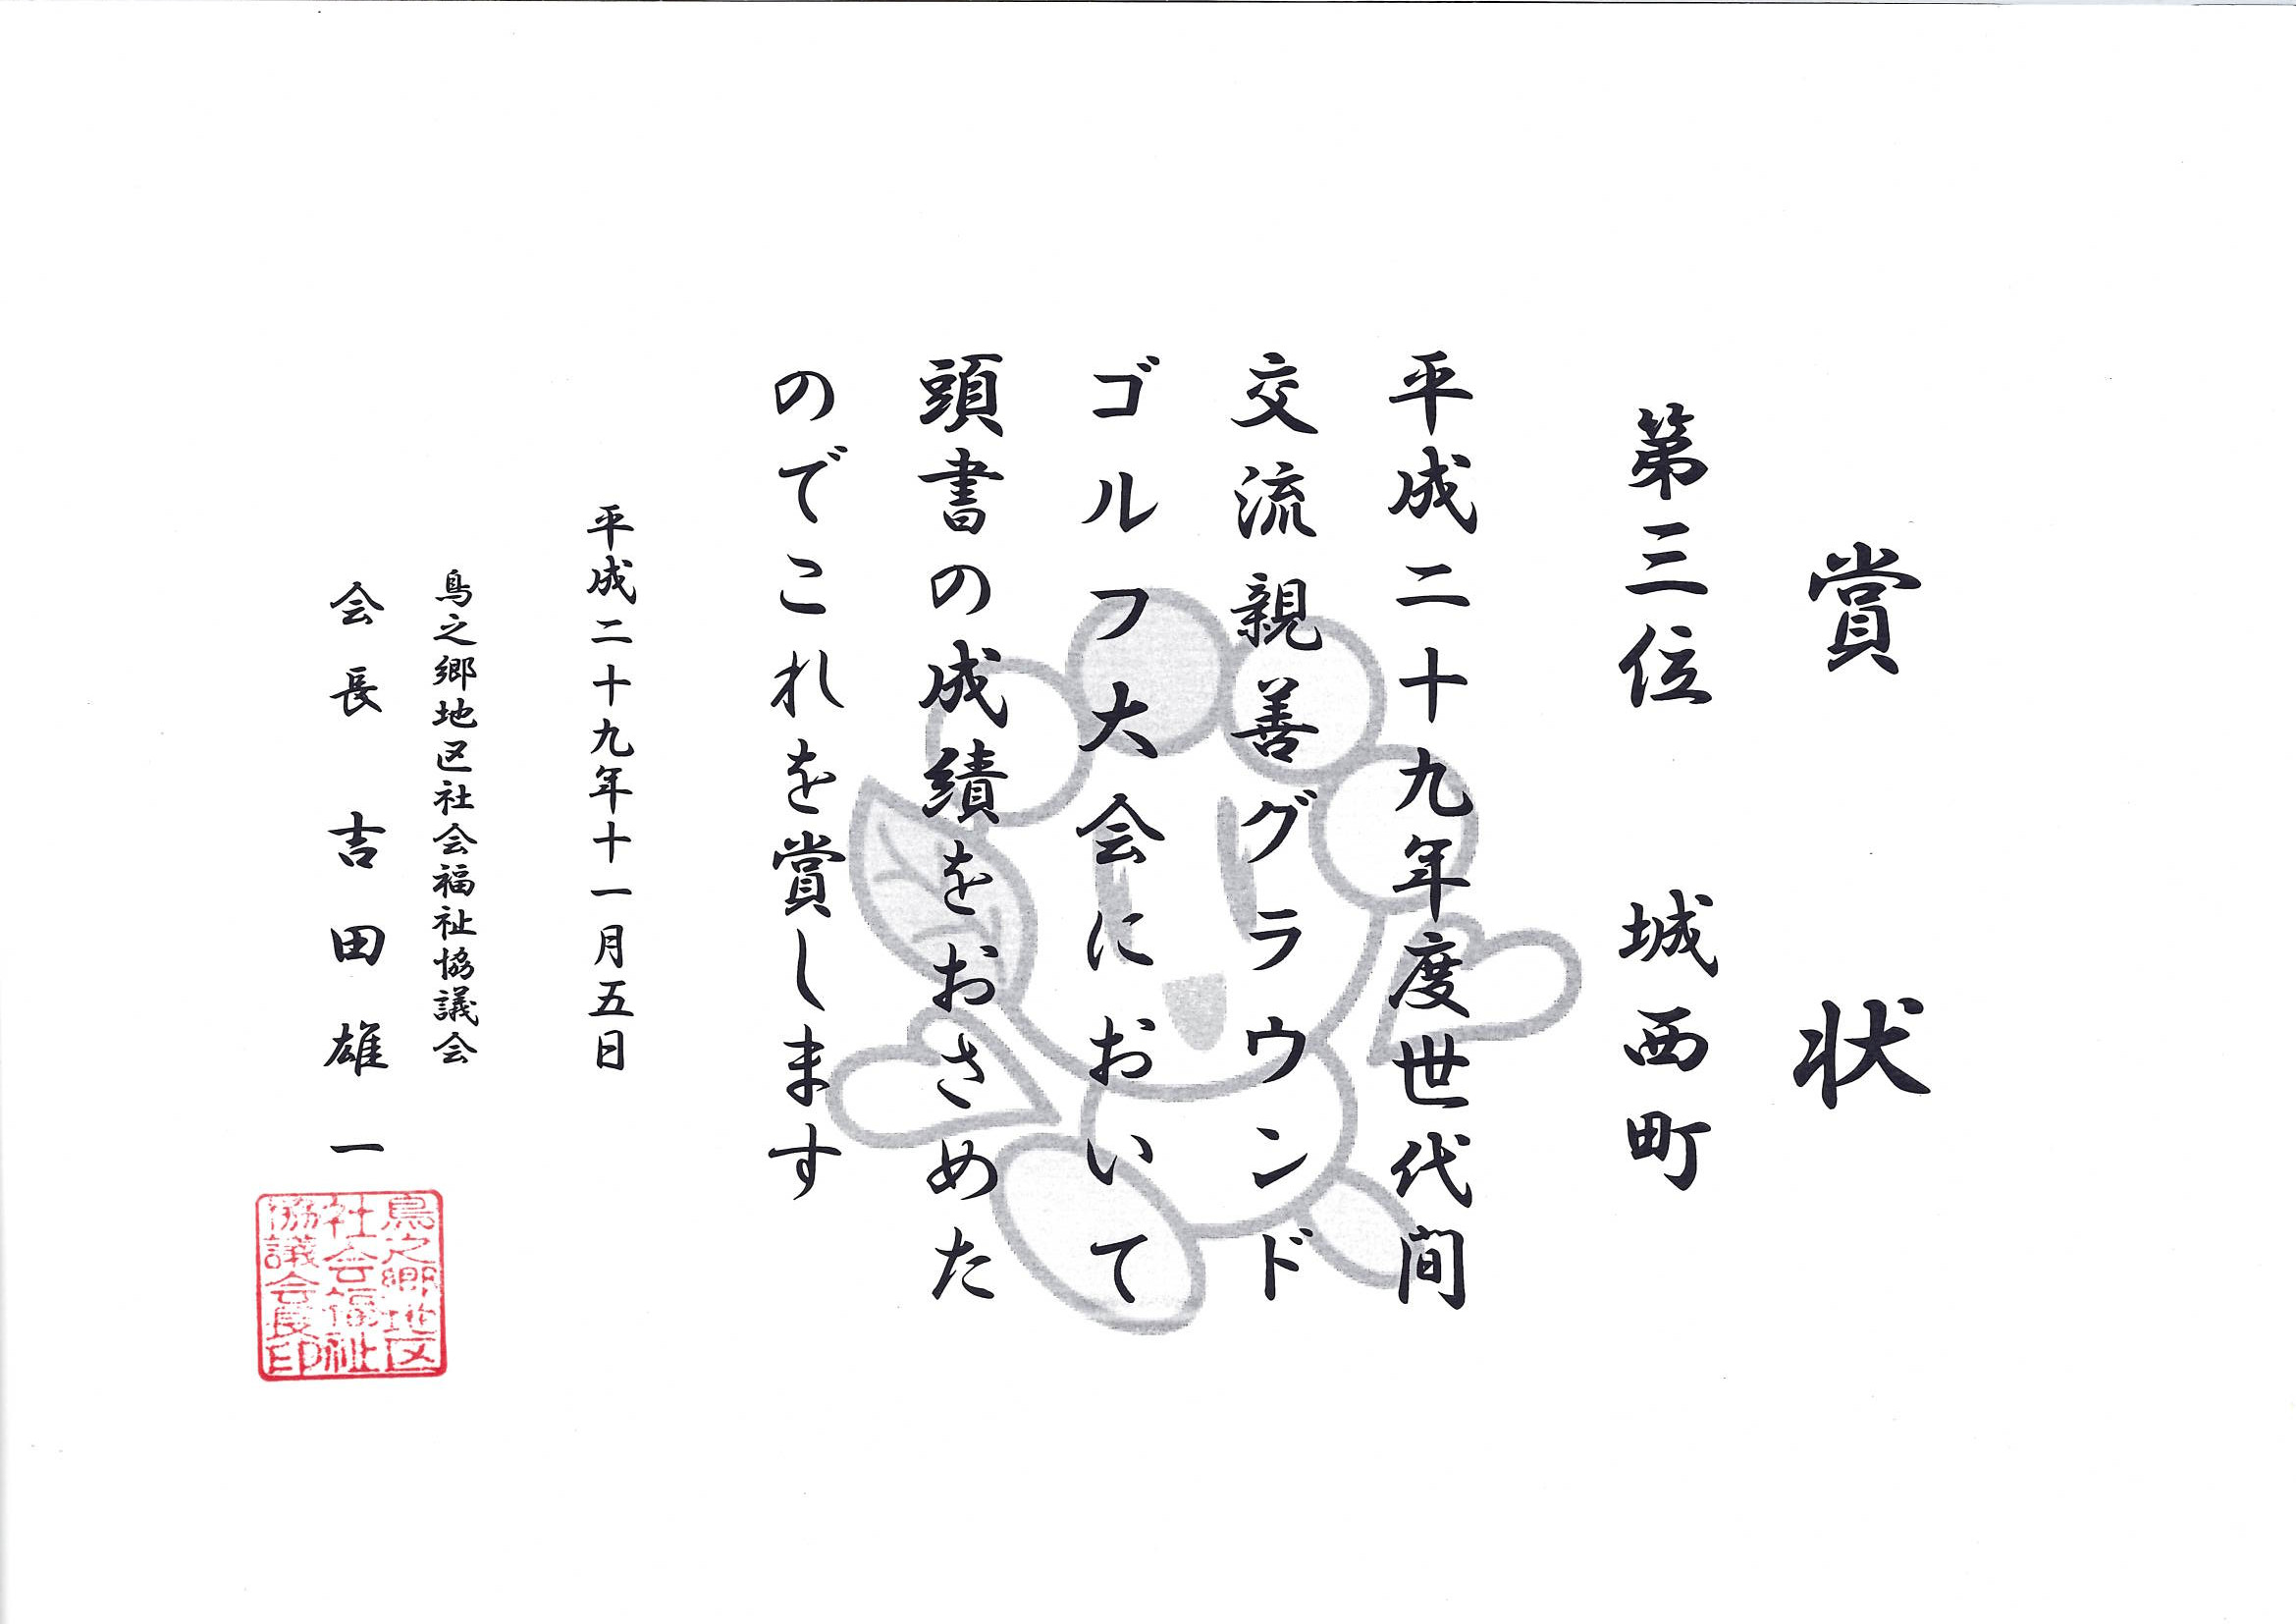 賞状
第三位 城西町
平成二十九年度世代間
交流親善グラウンド
ゴルフ大会において
頭書の成績をおさめた
のでこれを賞します
平成二十九年十一月五日
鳥之郷地区社会福祉協議会
会長 吉田雄一
鳥之郷地区
社会福祉
協議会長印